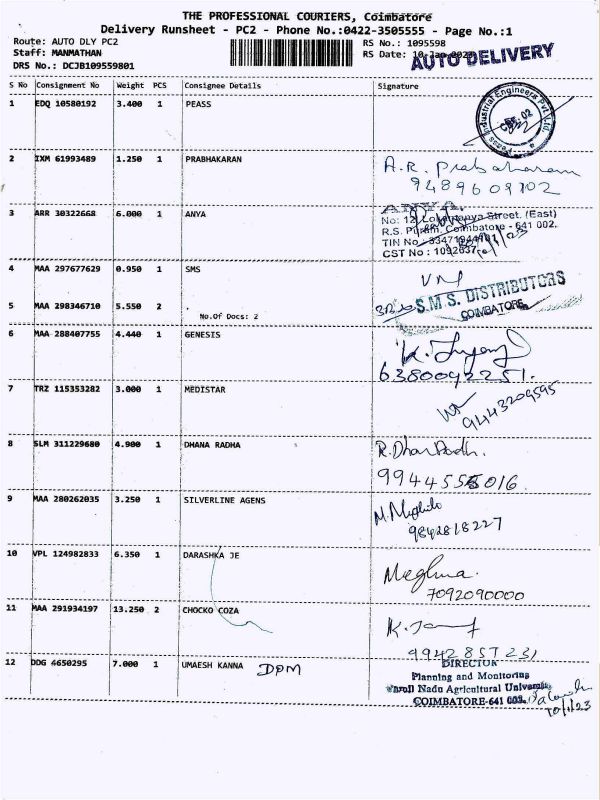 THE PROFESSIONAL COURIERS, Coimbatore
Delivery Runsheet - PC2 - Phone No.:0422-3505555 - Page No.:1
Route: AUTO DLY PC2
RS No.: 1095598
Staff: MANMATHAN
RS Date: 10-Jan-2023
AUTO DELIVERY
DRS No.: DCJB109559801
S No Consignment No Weight PCS Consignee Details Signature
1 EDQ 10580192 3.400 1 PEASS
Peass Industrial Engineers Pvt. Ltd.
CBE-02
2 IXM 61993489 1.250 1 PRABHAKARAN
A.R. Prabaharan
9489609702
3 ARR 30322668 6.000 1 ANYA
ANYA
Street. (East)
R.S. Puram, Coimbatore - 641 002.
TIN No : 33471944491
CST No : 1092637
4 MAA 297677629 0.950 1 SMS
5 MAA 298346710 5.550 2
No.Of Docs: 2
S.M.S. DISTRIBUTORS
COIMBATORE
6 MAA 288407755 4.440 1 GENESIS
6380092251.
7 TRZ 115353282 3.000 1 MEDISTAR
9443209595
8 SLM 311229680 4.900 1 DHANA RADHA
R.Dhan Radh.
9944555016.
9 MAA 280262035 3.250 1 SILVERLINE AGENS
9842818227
10 VPL 124982833 6.350 1 DARASHKA JE
Meghna.
7092090000
11 MAA 291934197 13.250 2 CHOCKO COZA
9942857231
12 DDG 4650295 7.000 1 UMAESH KANNA DPM
DIRECTOR
Planning and Monitoring
Tamil Nadu Agricultural University
COIMBATORE-641 003.
10/1/23